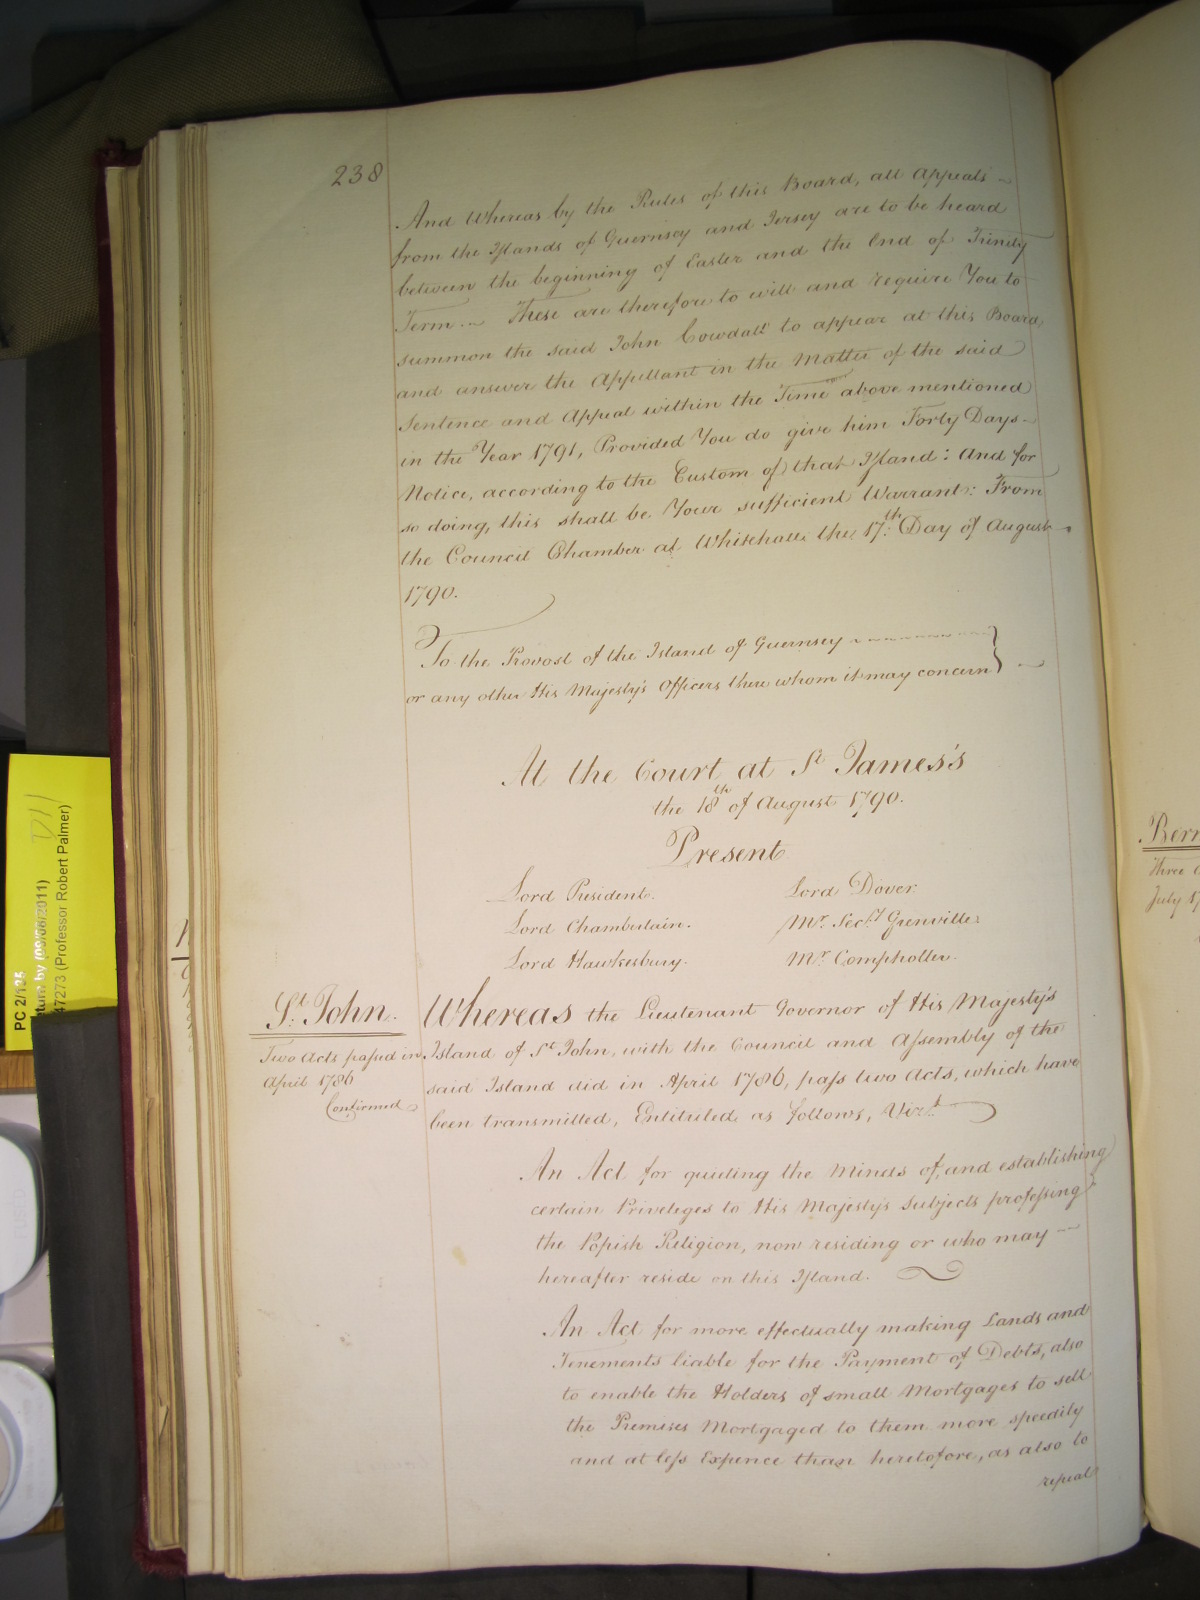 238
And Whereas by the Rules of this Board, all Appeals
from the Islands of Guernsey and Jersey are to be heard
between the beginning of Easter and the End of Trinity
Term. These are therefore to will and require You to
summon the said John Cowdall to appear at this Board,
and answer the Appellant in the Matter of the said
Sentence and Appeal within the Time above mentioned
in the Year 1791, Provided You do give him Forty Days
Notice, according to the Custom of that Island: And for
so doing, this shall be Your sufficient Warrant: From
the Council Chamber at Whitehall the 17th Day of August
1790.
To the Provost of the Island of Guernsey
or any other His Majesty's Officers there whom it may concern
At the Court at St James's
the 18th of August 1790.
Present
Lord President. Lord Dover.
Lord Chamberlain. Mr. Secry Grenville.
Lord Hawkesbury. Mr. Comptroller.
St. John.
Two Acts passed in
April 1786
Confirmed
Whereas the Lieutenant Governor of His Majesty's
Island of St John, with the Council and Assembly of the
said Island did in April 1786, pass two Acts, which have
been transmitted, Entituled as follows, Vizt
An Act for quieting the Minds of, and establishing
certain Priveleges to His Majesty's Subjects professing
the Popish Religion, now residing or who may
hereafter reside on this Island.
An Act for more effectually making Lands and
Tenements liable for the Payment of Debts, also
to enable the Holders of small Mortgages to sell
the Premises Mortgaged to them more speedily
and at less Expence than heretofore, as also to
repeal
PC 2/135
by (09/08/2011)
47273 (Professor Robert Palmer)
D11
Three
July